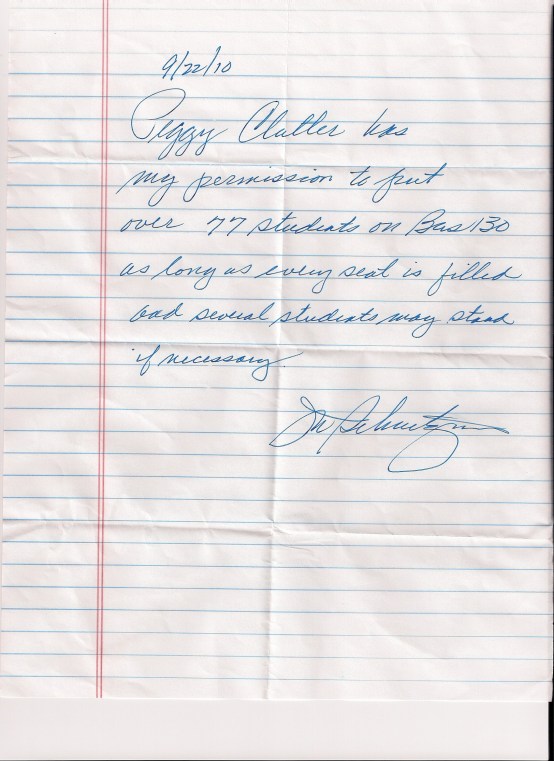 9/22/10
Peggy Clutter has
my permission to put
over 77 students on Bus 130
as long as every seat is filled
and several students may stand
if necessary.